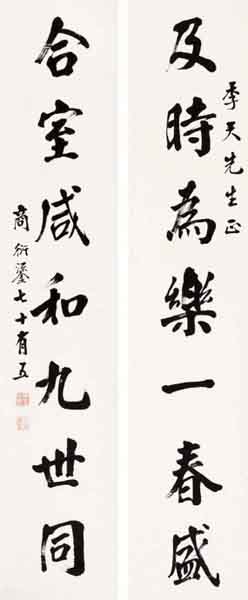 及時為樂一春盛
季天先生正
合室咸和九世同
商衍鎏七十有五